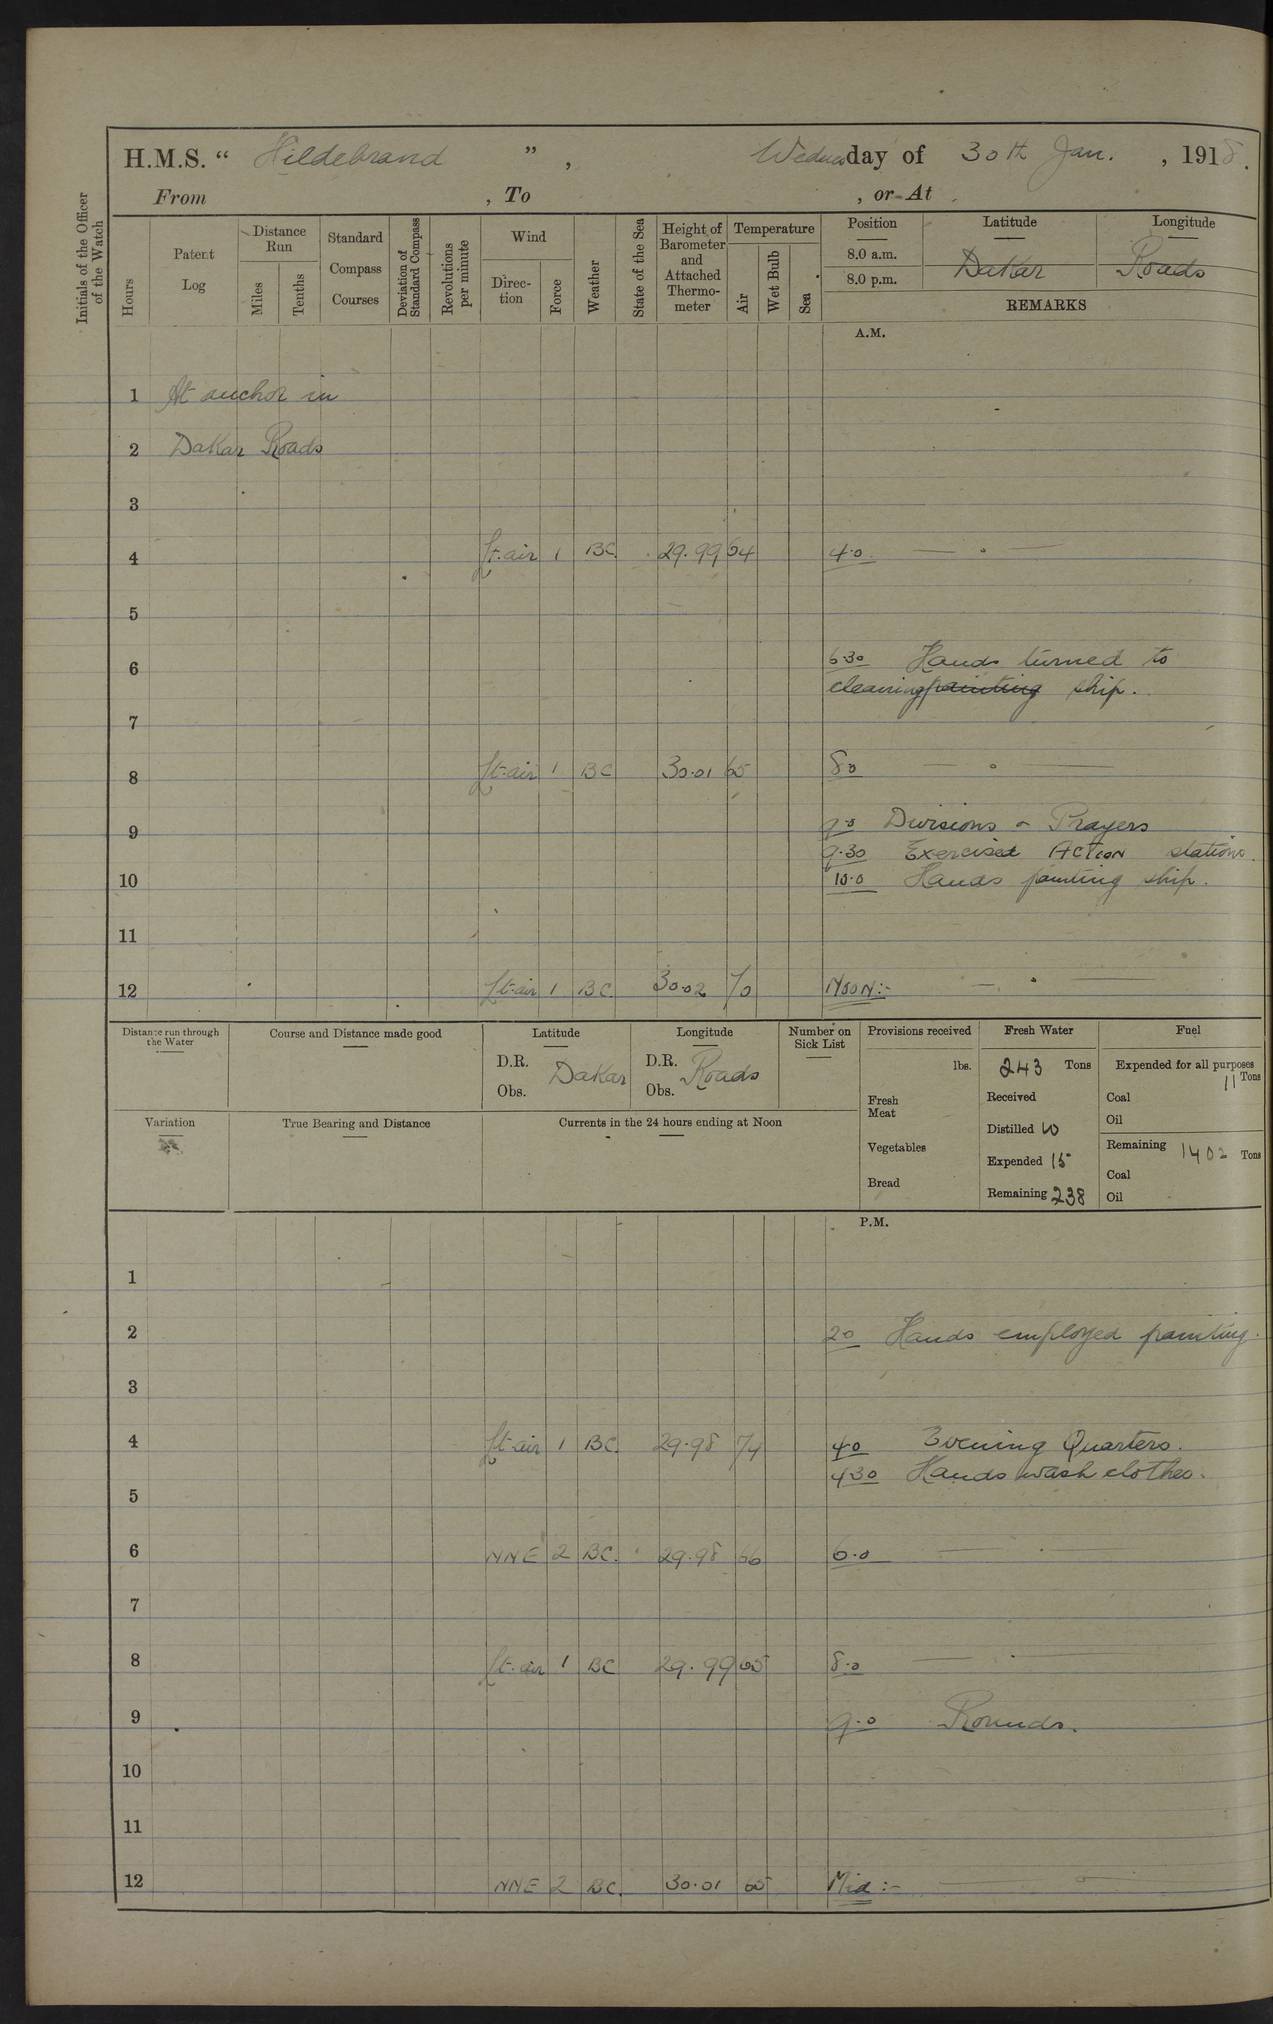 H.M.S. “ Hildebrand ” , Wednesday of 30th Jan. , 1918.
From , To , or At
Initials of the Officer of the Watch
Hours
Patent Log
Distance Run
Miles
Tenths
Standard Compass Courses
Deviation of Standard Compass
Revolutions per minute
Wind
Direction
Force
Weather
State of the Sea
Height of Barometer and Attached Thermometer
Temperature
Air
Wet Bulb
Sea
Position Latitude Longitude
8.0 a.m.
8.0 p.m.
Dakar Roads
REMARKS
A.M.
1 At anchor in
2 Dakar Roads
3
4 Lt-air 1 BC. 29.99 64 4.0 — . —
5
6 6.30 Hands turned to
cleaning painting ship.
7
8 Lt-air 1 BC 30.01 65 8.0 — . —
9 9.0 Divisions & Prayers
9.30 Exercised Action stations.
10 10.0 Hands painting ship.
11
12 Lt-air 1 BC. 30.02 70 Noon:- — . —
Distance run through the Water
Course and Distance made good
Latitude
D.R.
Obs.
Dakar
Longitude
D.R.
Obs.
Roads
Number on Sick List
Provisions received
lbs.
Fresh Meat
Vegetables
Bread
Fresh Water
243 Tons
Received
Distilled 10
Expended 15
Remaining 238
Fuel
Expended for all purposes
11 Tons
Coal
Oil
Remaining 1402 Tons
Coal
Oil
Variation
True Bearing and Distance
Currents in the 24 hours ending at Noon
P.M.
1
2 2.0 Hands employed painting.
3
4 Lt-air 1 BC. 29.98 74 4.0 Evening Quarters.
4.30 Hands wash clothes.
5
6 NNE 2 BC. 29.98 66 6.0 — . —
7
8 Lt-air 1 BC 29.99 65 8.0 — . —
9 9.0 Rounds.
10
11
12 NNE 2 BC. 30.01 65 Mid:- — . —